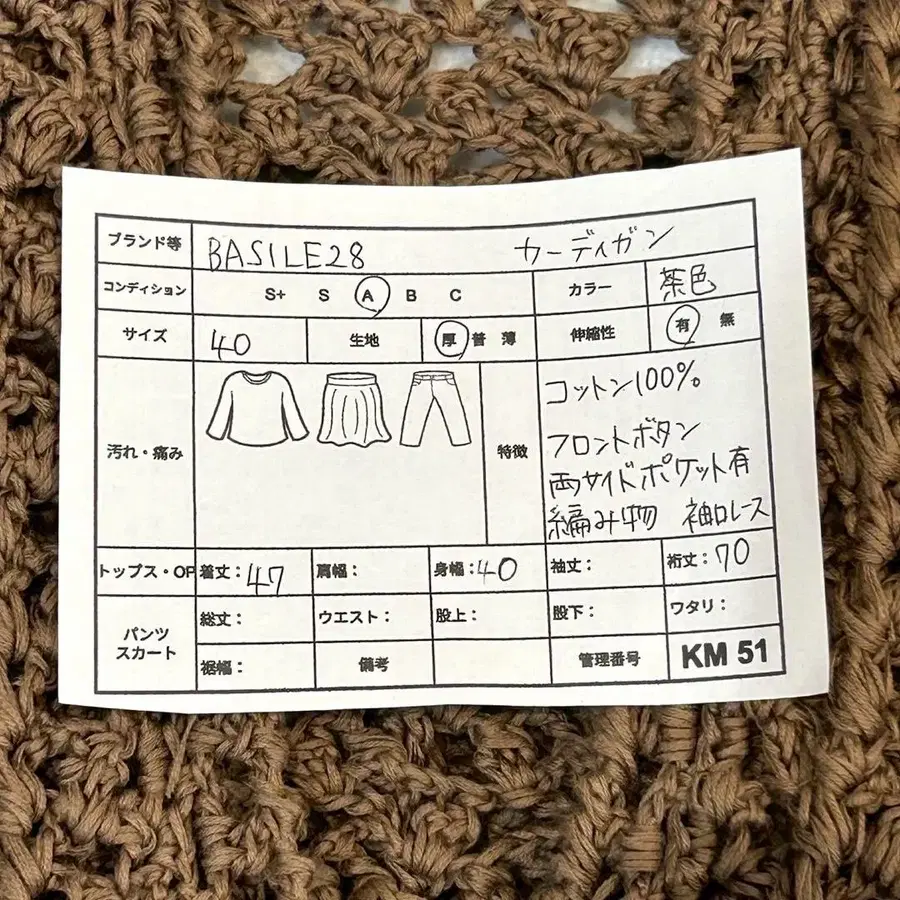 ブランド等 BASILE28 カーディガン
コンディション S+ S A B C カラー 茶色
サイズ 40 生地 厚 普 薄 伸縮性 有 無
汚れ・痛み 特徴
コットン100%
フロントボタン
両サイドポケット有
編み物 袖口レース
トップス・OP 着丈：47 肩幅： 身幅：40 袖丈： 裄丈：70
パンツ
スカート
総丈： ウエスト： 股上： 股下： ワタリ：
裾幅： 備考 管理番号 KM 51